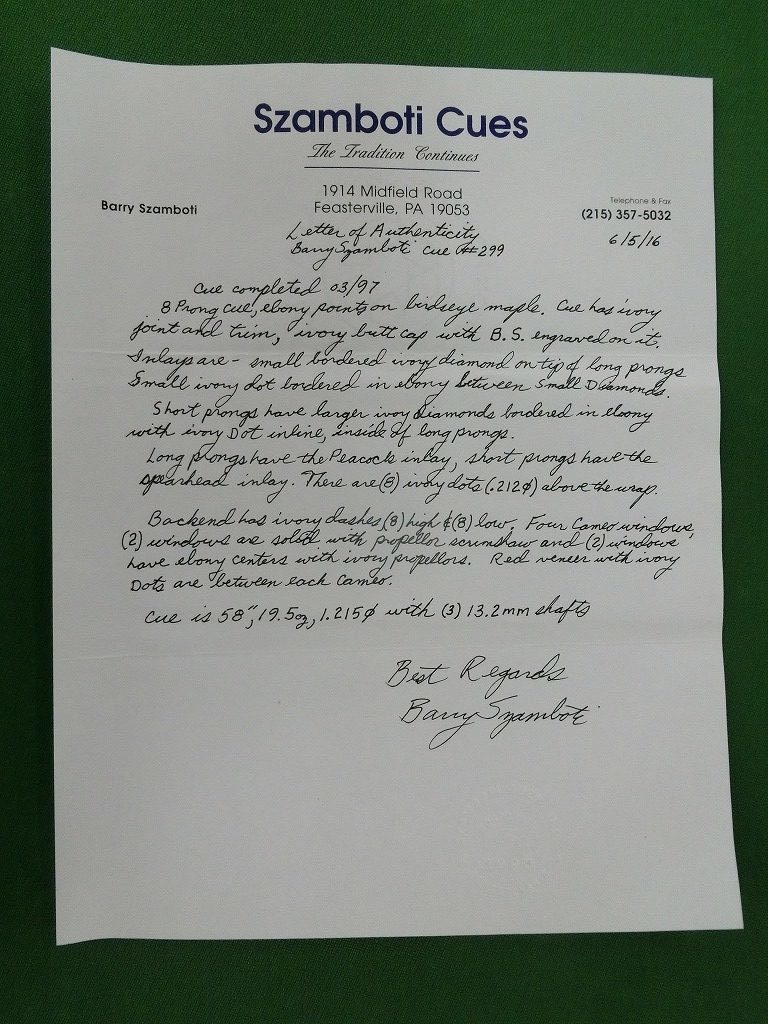 Szamboti Cues
The Tradition Continues
1914 Midfield Road
Feasterville, PA 19053
Barry Szamboti
Telephone & Fax
(215) 357-5032
Letter of Authenticity
6/5/16
Barry Szamboti Cue #299
Cue completed 03/97
8 Prong Cue, ebony points on birdseye maple. Cue has ivory
joint and trim, ivory butt cap with B.S. engraved on it.
Inlays are - small bordered ivory diamond on tip of long prongs
Small ivory dot bordered in ebony between Small Diamonds.
Short prongs have larger ivory diamonds bordered in ebony
with ivory Dot inline, inside of long prongs.
Long prongs have the Peacock inlay, short prongs have the
spearhead inlay. There are (8) ivory dots (.212ϕ) above the wrap.
Backend has ivory dashes (8) high & (8) low. Four Cameo windows,
(2) windows are solid with propellor scrimshaw and (2) windows
have ebony centers with ivory propellors. Red veneer with ivory
Dots are between each Cameo.
Cue is 58", 19.5oz, 1.215ϕ with (3) 13.2mm shafts
Best Regards
Barry Szamboti